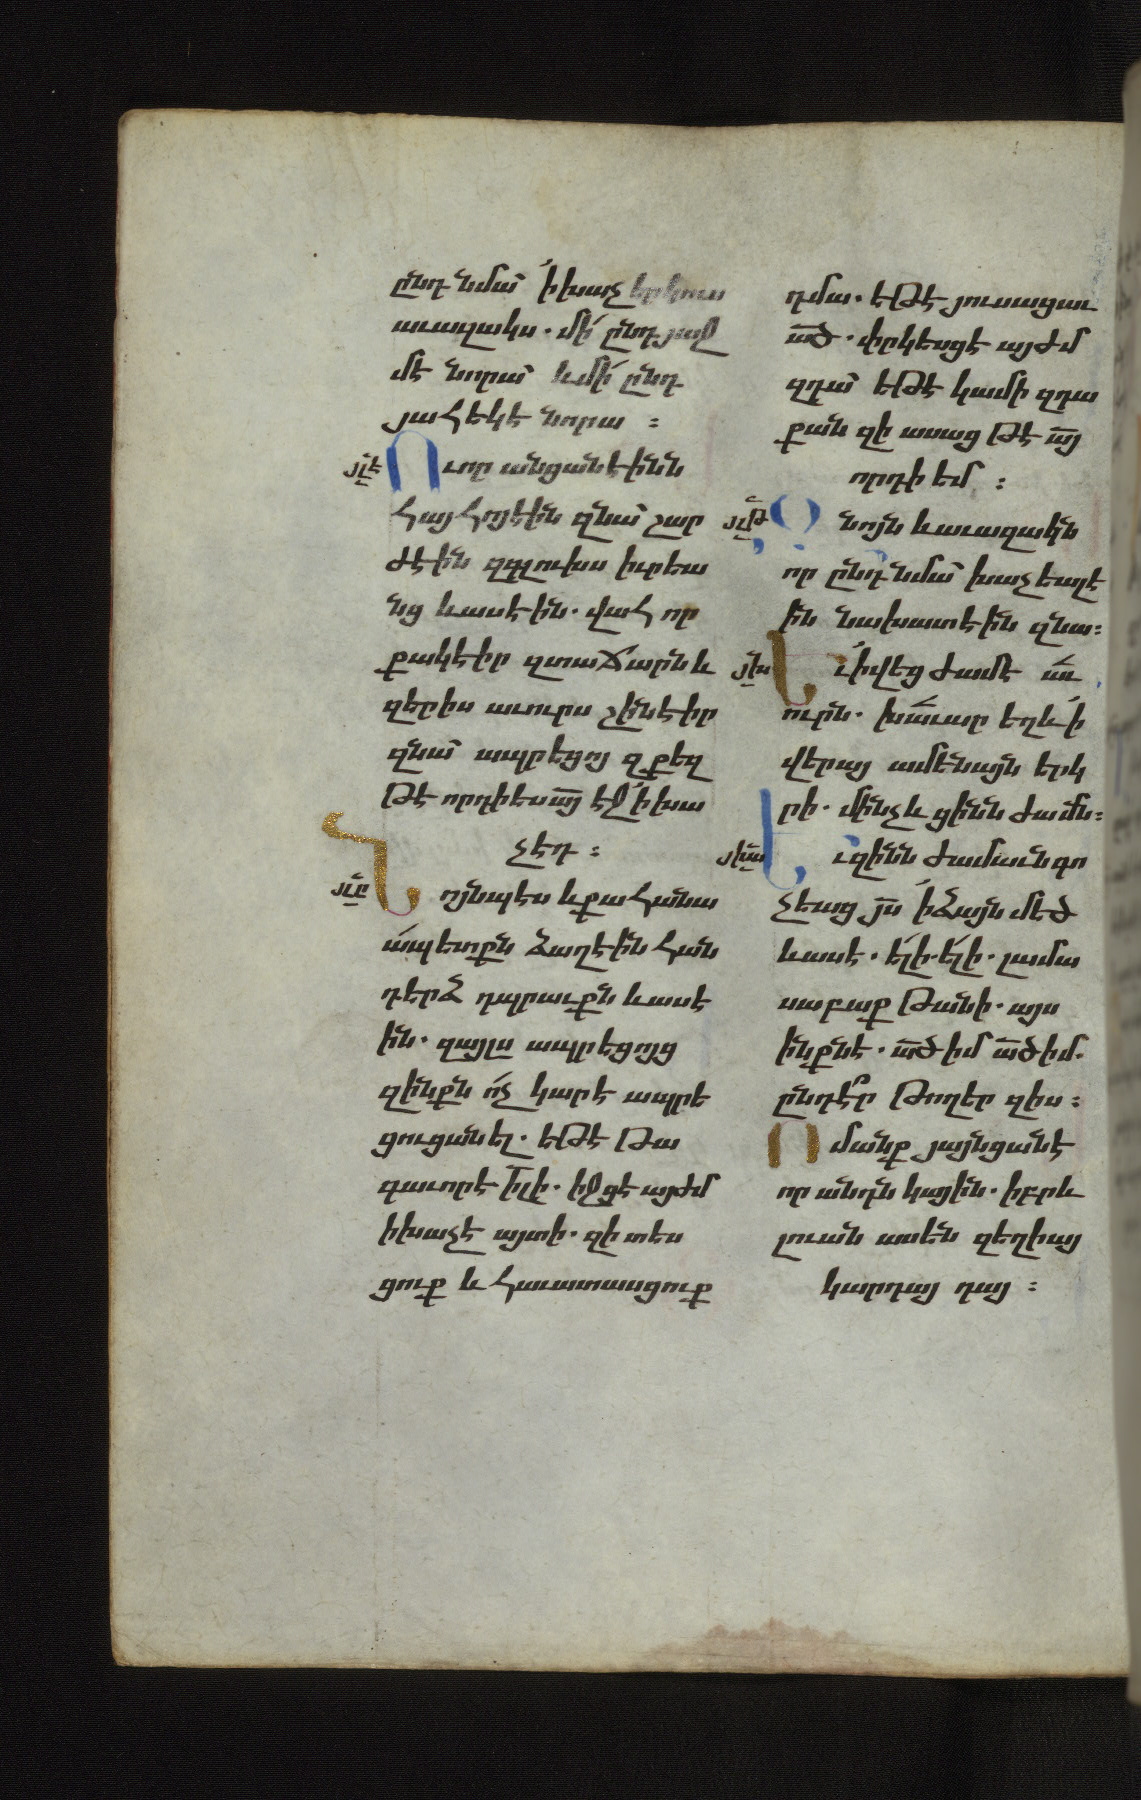 ընդ նմա՛ ՛ի խաչ երկուս
աւազակս. մի՛ ընդ յաջ
մէ նորա՛ և մի՛ ընդ
յահեկէ նորա :
յլէ
Ոււոր անցանէինն
հայհոյէին զնա՛ շար
ժէին զգլուխս իւրեա
նց և ասէին. վահ որ
քակէիր զտաճարն և
զերիս աւուրս շինէիր
զնա՛ ապրեցոյ զքեզ
թէ որդի ես ա՟յ էջ ՛ի խա
չէդ :
յլը
Նոյնպէս և քահանա
ապետքն ծաղէին հան
դերձ դպրաւքն և ասէ
ին. զայլս ապրեցոյց
զինքն ո՛չ կարէ ապրե
ցուցանել. եթէ թա
գաւոր է ի՟լի. իջցէ այժմ
ի խաչէ այտի. զի տես
ցուք և հաւատասցուք
դմա. եթէ յուսացաւ
ա՟ծ. փրկեսցէ այժմ
զդա՛ եթէ կամի զդա
քան զի ասաց թէ ա՟յ
որդի եմ :
յլթ
Զնոյն և աւազակն
որ ընդ նմա՛ խաչեալէ
ին նախատէին զնա:
յխ
Եւ ՛ի վեց ժամէ ա՟ւ
ուրն. խա՟ւար եղև ՛ի
վերայ ամենայն երկ
րի. մինչև ցինն ժամն:
յխա
Եւ զինն ժամաւն գո
չեաց յ՟ս ՛ի ձայն մեծ
և ասէ. է՛լի. է՛լի. լամա
սաբաքթանի. այս
ինքն է. ա՟ծ իմ ա՟ծ իմ.
ընդէ՞ր թողեր զիս :
Ոմանք յայնցանէ
որ անդն կային. իբրև
լուան ասեն զեղիայ
կարդայ դայ :